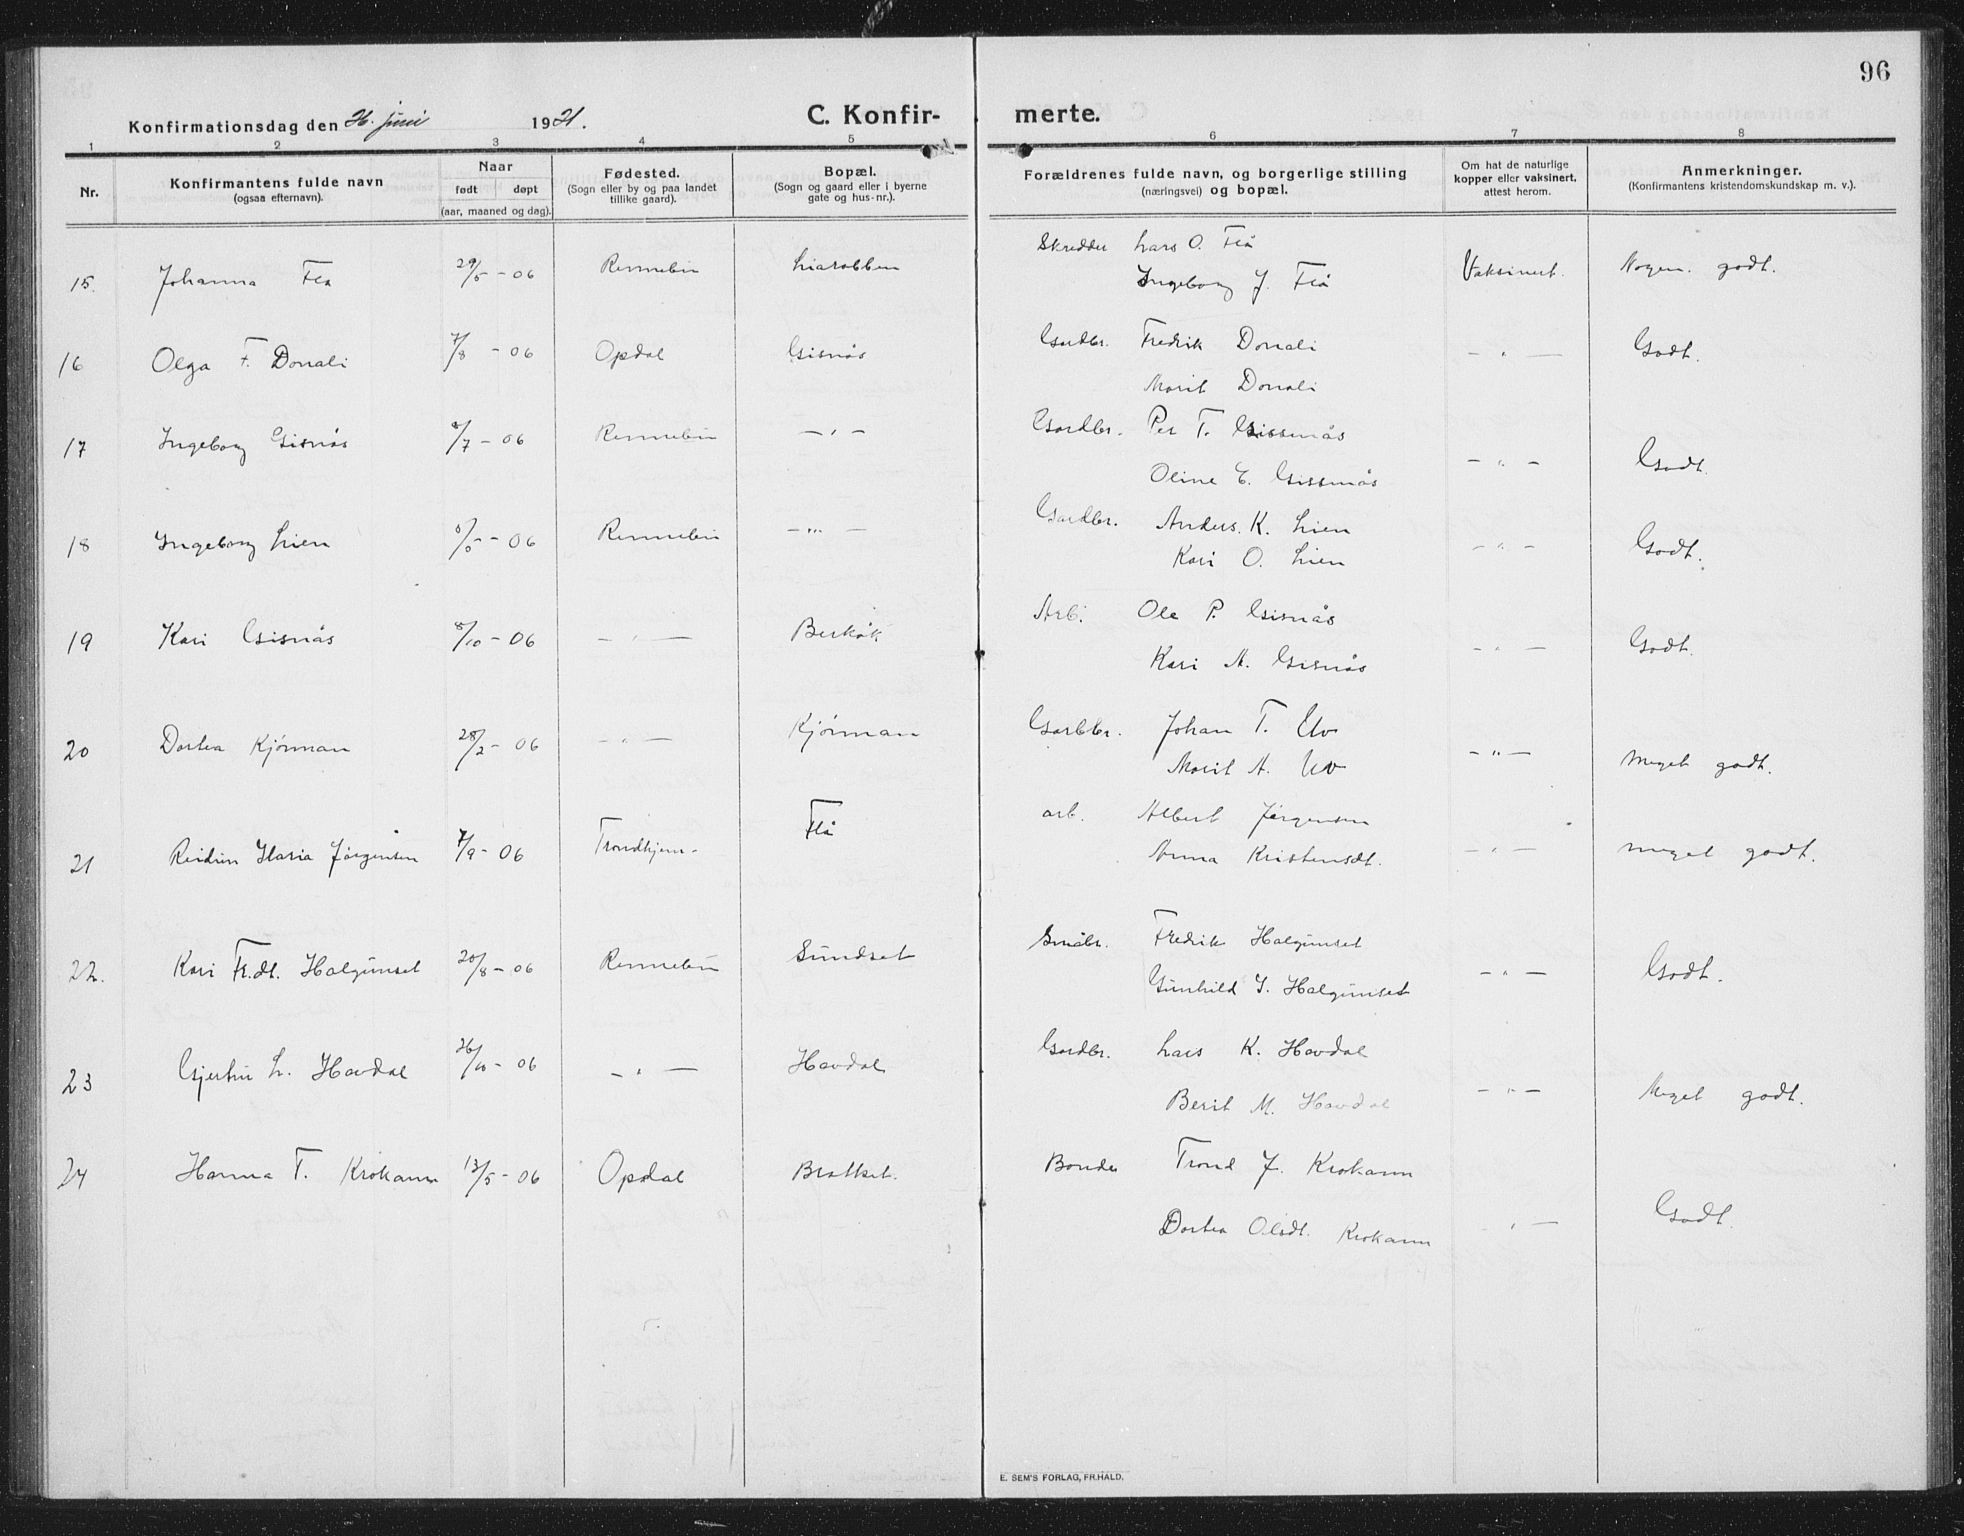 96
Konfirmationsdag den 26. juni 1921.
C. Konfir-
merte.
1 2 3 4 5 6 7 8
Nr.
Konfirmantens fulde navn
(ogsaa efternavn).
Naar
født døpt
(aar, maaned og dag).
Fødested.
(Sogn eller by og paa landet
tillike gaard).
Bopæl.
(Sogn og gaard eller i byerne
gate og hus-nr.).
Forældrenes fulde navn, og borgerlige stilling
(næringsvei) og bopæl.
Om hat de naturlige
kopper eller vaksinert,
attest herom.
Anmerkninger.
(Konfirmantens kristendomskundskap m. v.).
15. Johanna Flå 29/5 - 06 Rennebu Liarabben Skredder Lars O. Flå Vaksinert. Nogen. godt.
Ingeborg J. Flå
16 Olga F. Donali 7/8 - 06 Opdal Gisnås Gardbr. Fredrik Donali - " - Godt.
Marit Donali
17 Ingeborg Gisnås /7 - 06 Rennebu - " - Gardbr. Per T. Gissnås - " - Godt.
Oline E. Gissnås
18 Ingeborg Lien - 06 Rennebu - " - Gardbr. Anders. K. Lien - " - Godt.
Kari O. Lien
19 Kari Gisnås 8/10 - 06 - " - Berkåk Arb. Ole P. Gisnås - " - Godt.
Kari A. Gisnås
20 Dortea Kjörman 28/2 - 06 - " - Kjörman Gardbr. Johan T. Uv - " - Meget godt.
Marit A. Uv
21 Reidun Maria Jörgensen 7/9 - 06 Trondhjem - Flå arb. Albert Jörgensen - " - meget godt.
Anna Kristensdt.
22. Kari Fr.dt. Halgunset 20/8 - 06 Rennebu Sundset Småbr. Fredrik Halgunset - " - Godt.
Gunhild I. Halgunset
23 Gjertru L. Havdal 26/10 - 06 - " - Havdal Gardbr. Lars K. Havdal - " - Meget godt.
Berit M. Havdal
24 Hanna T. Krokann 13/5 - 06 Opdal Brattset. Bonde Trond J. Krokann
Dortea Olsdt. Krokann " - Godt.
E. SEM'S FORLAG, FR.HALD.